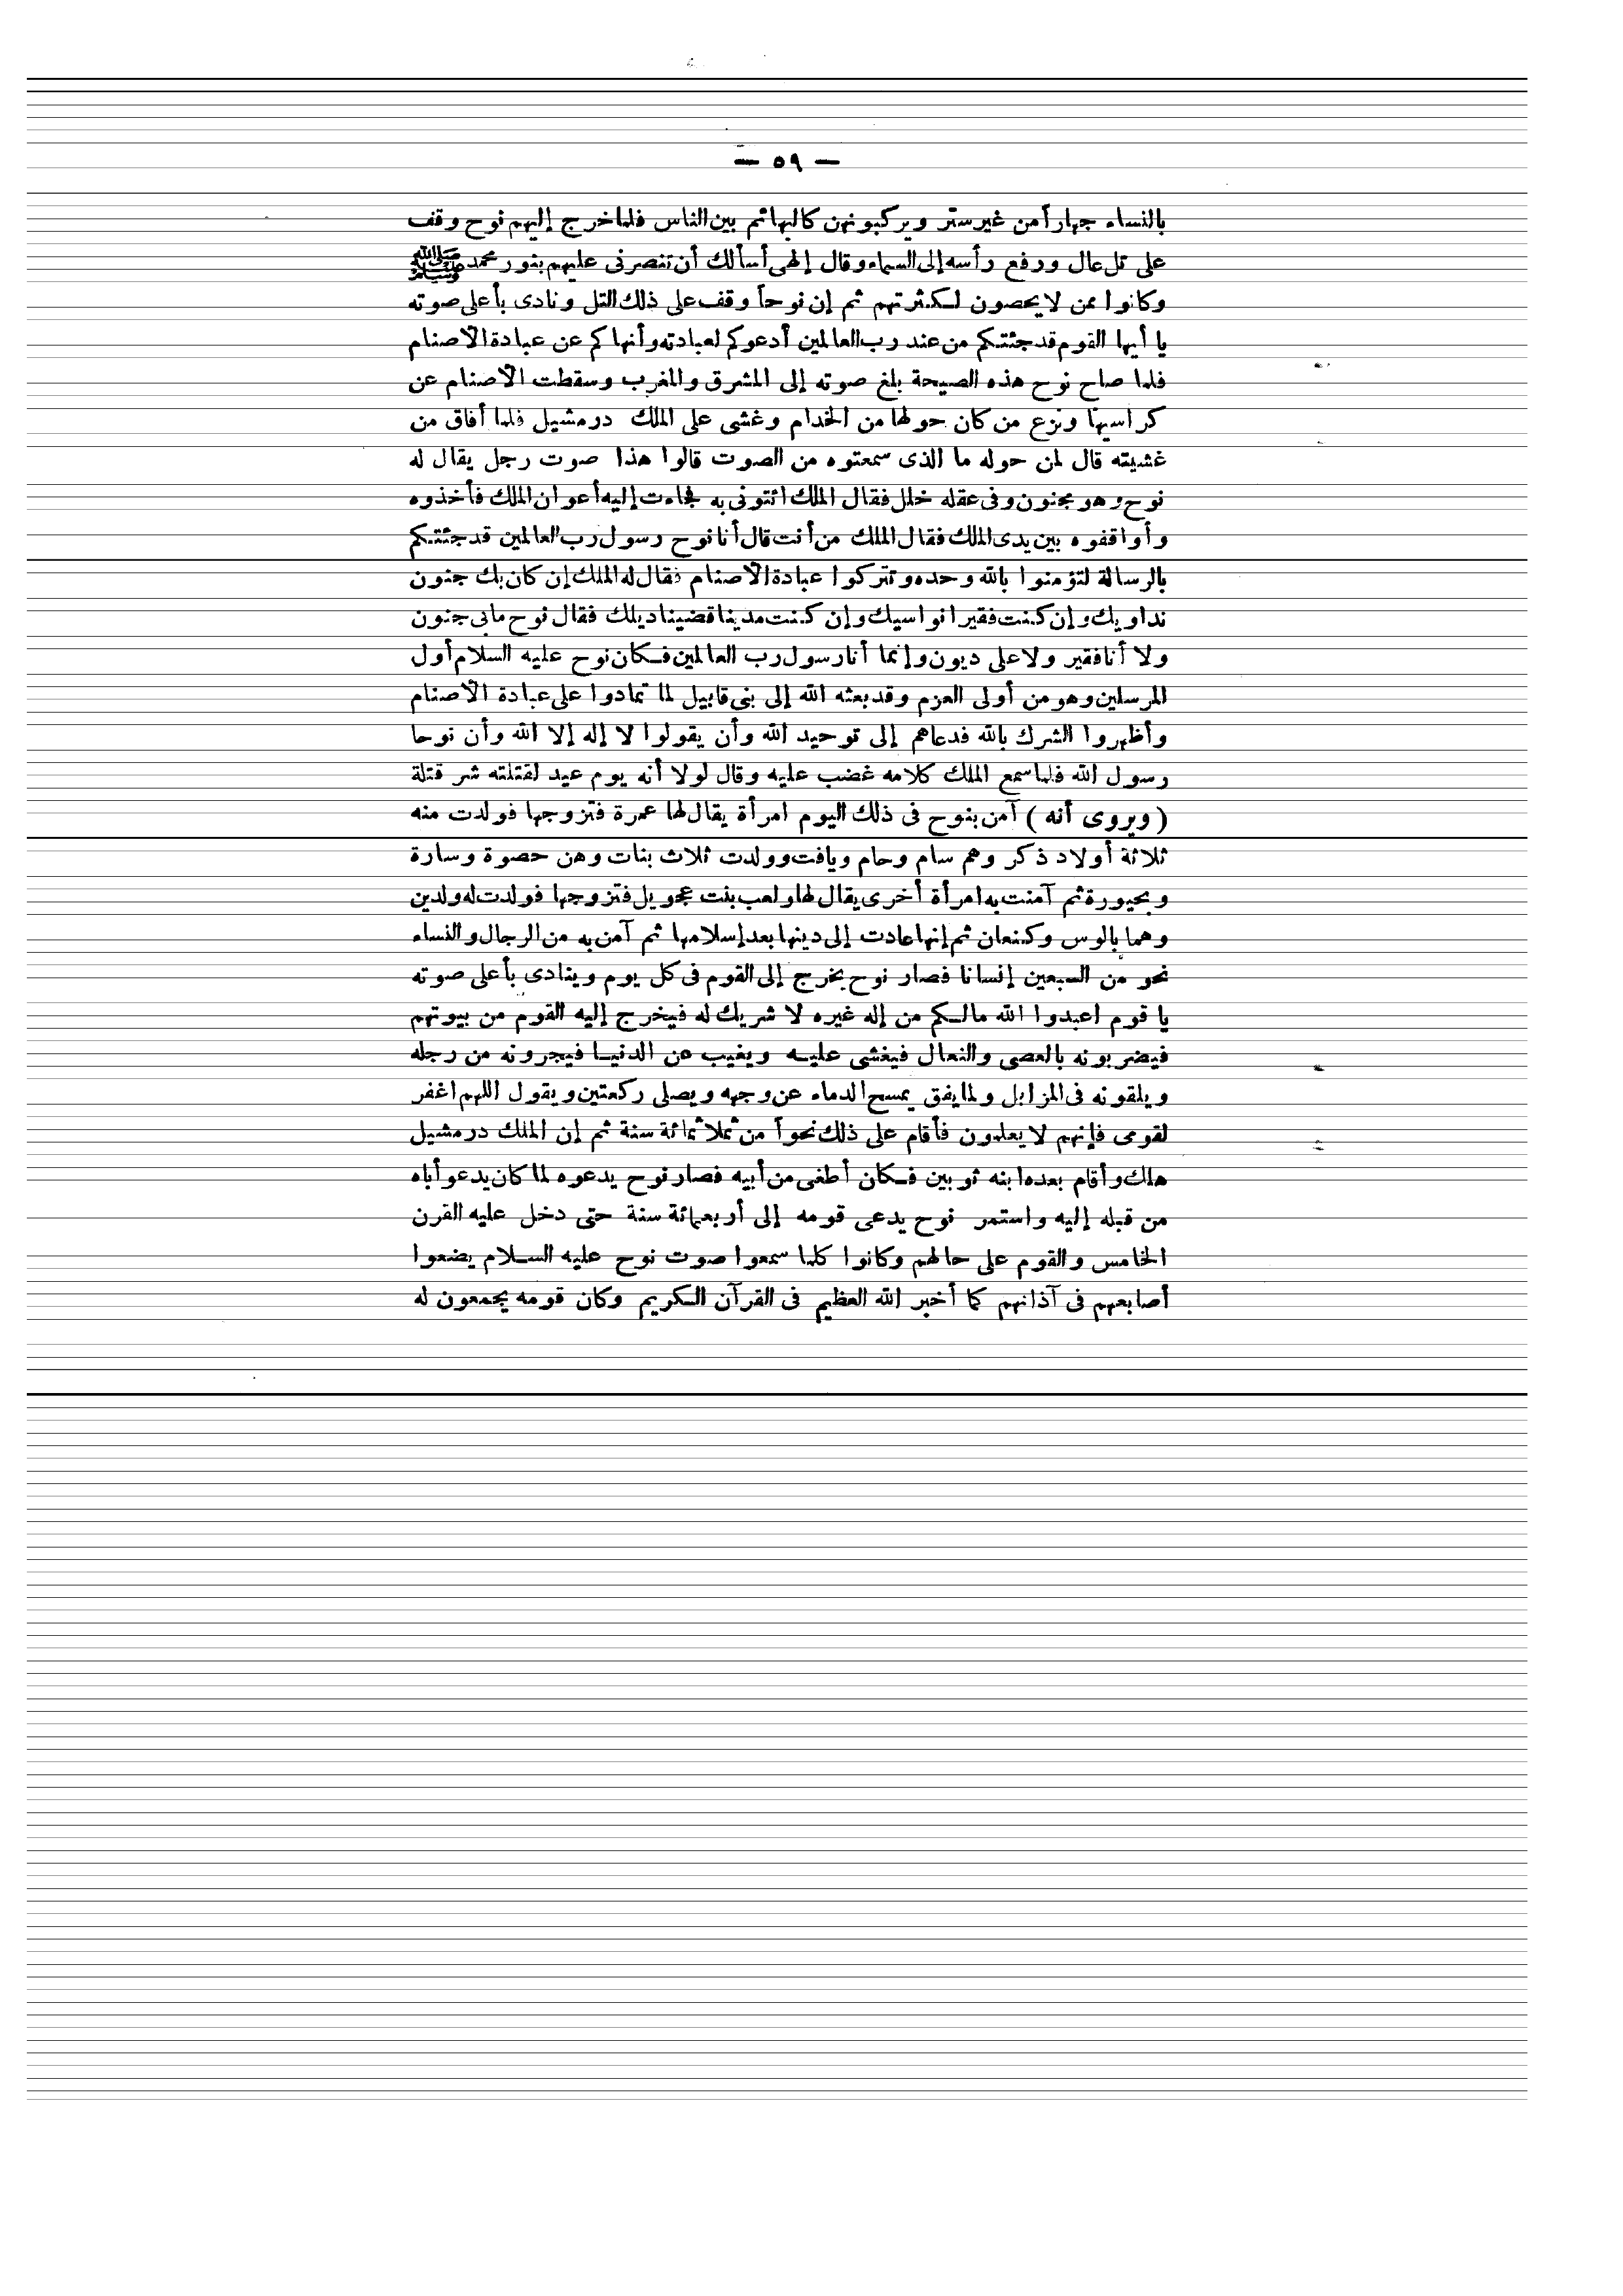 — ٥٩ —
بالنساء جهاراً من غير ستر ويركبونهن كالبهائم بين الناس فلما خرج إليهم نوح وقف
على تل عال ورفع رأسه إلى السماء وقال إلهى أسألك أن تنصرنى عليهم بنور محمد ﷺ
وكانوا ممن لا يحصون لكثرتهم ثم إن نوحاً وقف على ذلك التل ونادى بأعلى صوته
يا أيها القوم قد جئتكم من عند رب العالمين أدعوكم لعبادته وأنهاكم عن عبادة الأصنام
فلما صاح نوح هذه الصيحة بلغ صوته إلى المشرق والمغرب وسقطت الأصنام عن
كراسيها ونزع من كان حولها من الخدام وغشى على الملك درمشيل فلما أفاق من
غشيته قال لمن حوله ما الذى سمعتوه من الصوت قالوا هذا صوت رجل يقال له
نوح وهو مجنون وفى عقله خلل فقال الملك ائتونى به فجاءت إليه أعوان الملك فأخذوه
وأواقفوه بين يدى الملك فقال الملك من أنت قال أنا نوح رسول رب العالمين قد جئتكم
بالرسالة لتؤمنوا بالله وحده وتتركوا عبادة الأصنام فقال له الملك إن كان بك جنون
نداويك وإن كنت فقيرا نواسيك وإن كنت مدينا قضينا ديلك فقال نوح مابى جنون
ولا أنا فقير ولا على ديون وإنما أنا رسول رب العالمين فكان نوح عليه السلام أول
المرسلين وهو من أولى العزم وقد بعثه الله إلى بنى قابيل لما تمادوا على عبادة الأصنام
وأظهروا الشرك بالله فدعاهم إلى توحيد الله وأن يقولوا لا إله إلا الله وأن نوحا
رسول الله فلما سمع الملك كلامه غضب عليه وقال لولا أنه يوم عيد لقتلته شر قتلة
( ويروى أنه ) آمن بنوح فى ذلك اليوم امرأة يقال لها عمرة فتزوجها فولدت منه
ثلاثة أولاد ذكر وهم سام وحام ويافت وولدت ثلاث بنات وهن حصوة وسارة
وبحيورة ثم آمنت به امرأة أخرى يقال لها ولعب بنت عجويل فتزوجها فولدت له ولدين
وهما بالوس وكنعان ثم إنها عادت إلى دينها بعد إسلامها ثم آمن به من الرجال والنساء
نحو من السبعين إنسانا فصار نوح يخرج إلى القوم فى كل يوم وينادى بأعلى صوته
يا قوم اعبدوا الله مالكم من إله غيره لا شريك له فيخرج إليه القوم من بيوتهم
فيضربونه بالعصى والنعال فيغشى عليه ويغيب عن الدنيا فيجرونه من رجله
ويلقونه فى المزابل ولما يفق يمسح الدماء عن وجهه ويصلى ركعتين ويقول اللهم اغفر
لقومى فإنهم لا يعلمون فأقام على ذلك نحواً من ثملاثمائة سنة ثم إن الملك درمشيل
هلك وأقام بعده ابنه ثوبين فكان أطغى من أبيه فصار نوح يدعوه لما كان يدعو أباه
من قبله إليه واستمر نوح يدعى قومه إلى أربعمائة سنة حتى دخل عليه القرن
الخامس والقوم على حالهم وكانوا كلما سمعوا صوت نوح عليه السلام يضعوا
أصابعهم فى آذانهم كما أخبر الله العظيم فى القرآن الكريم وكان قومه يجمعون له